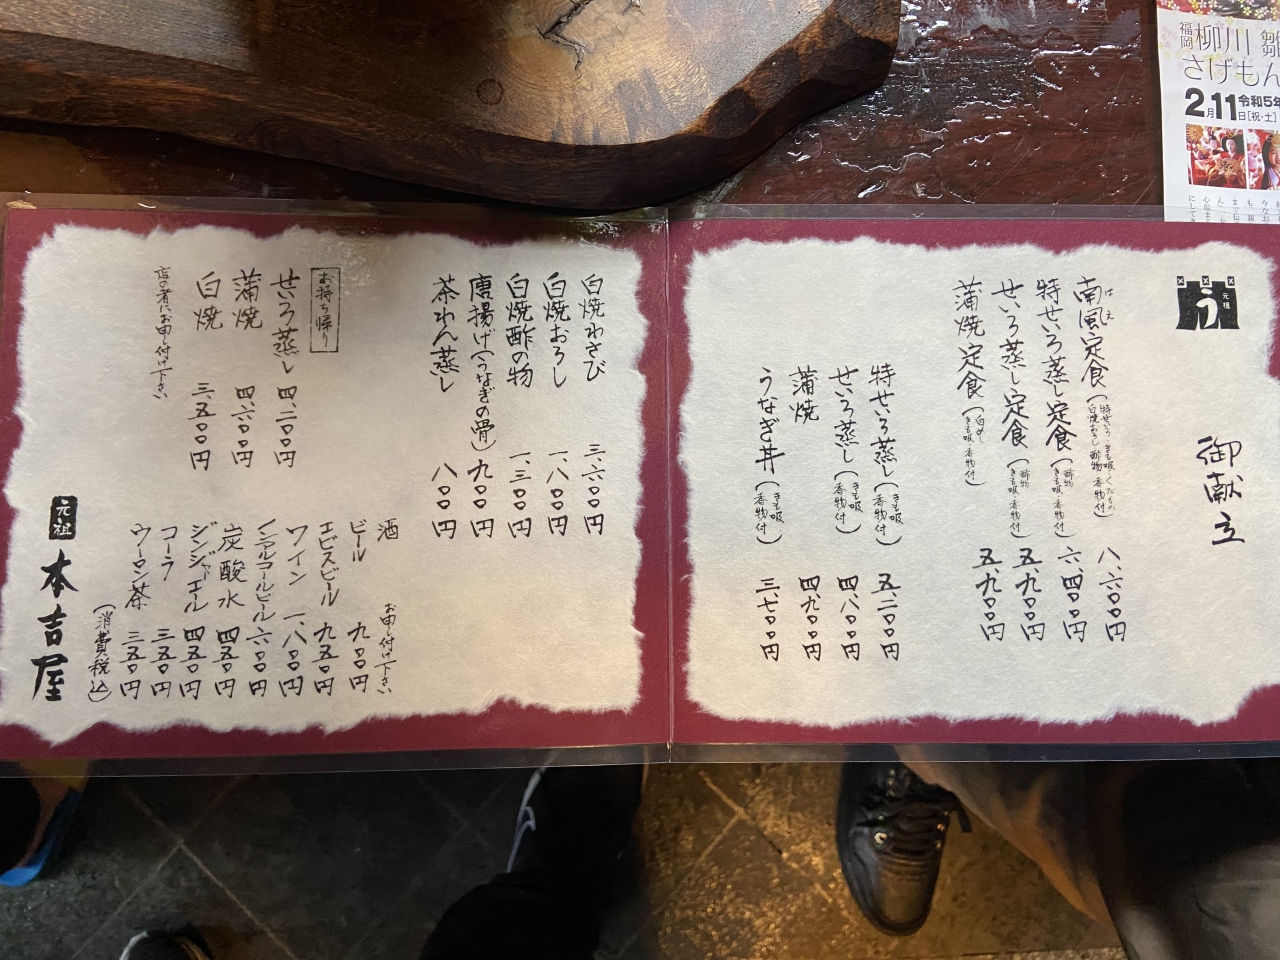 元祖
う
御献立
南風定食(特せいろ・きも吸・くだもの 白焼おろし 酢物 香物付) 八、六〇〇円
はえ
特せいろ蒸し定食(酢物 きも吸 香物付) 六、四〇〇円
せいろ蒸し定食(酢物 きも吸 香物付) 五、九〇〇円
蒲焼定食(白めし きも吸 香物付) 五、九〇〇円
特せいろ蒸し(きも吸 香物付) 五、二〇〇円
せいろ蒸し(きも吸 香物付) 四、八〇〇円
蒲焼 四、九〇〇円
うなぎ丼(きも吸 香物付) 三、七〇〇円
白焼わさび 三、六〇〇円
白焼おろし 一、八〇〇円
白焼酢の物 一、三〇〇円
唐揚げ(うなぎの骨) 九〇〇円
茶わん蒸し 八〇〇円
お持ち帰り
せいろ蒸し 四、二〇〇円
蒲焼 四、六〇〇円
白焼 三、五〇〇円
店の者にお申し付け下さい
酒 お申し付け下さい
ビール 九〇〇円
エビスビール 九五〇円
ワイン 一、八〇〇円
ノンアルコールビール 六〇〇円
炭酸水 四五〇円
ジンジャエール 四五〇円
コーラ 三五〇円
ウーロン茶 三五〇円
(消費税込)
元祖
本吉屋
福岡
柳川 雛
さげもん
2月11日[祝・土]
令和5年